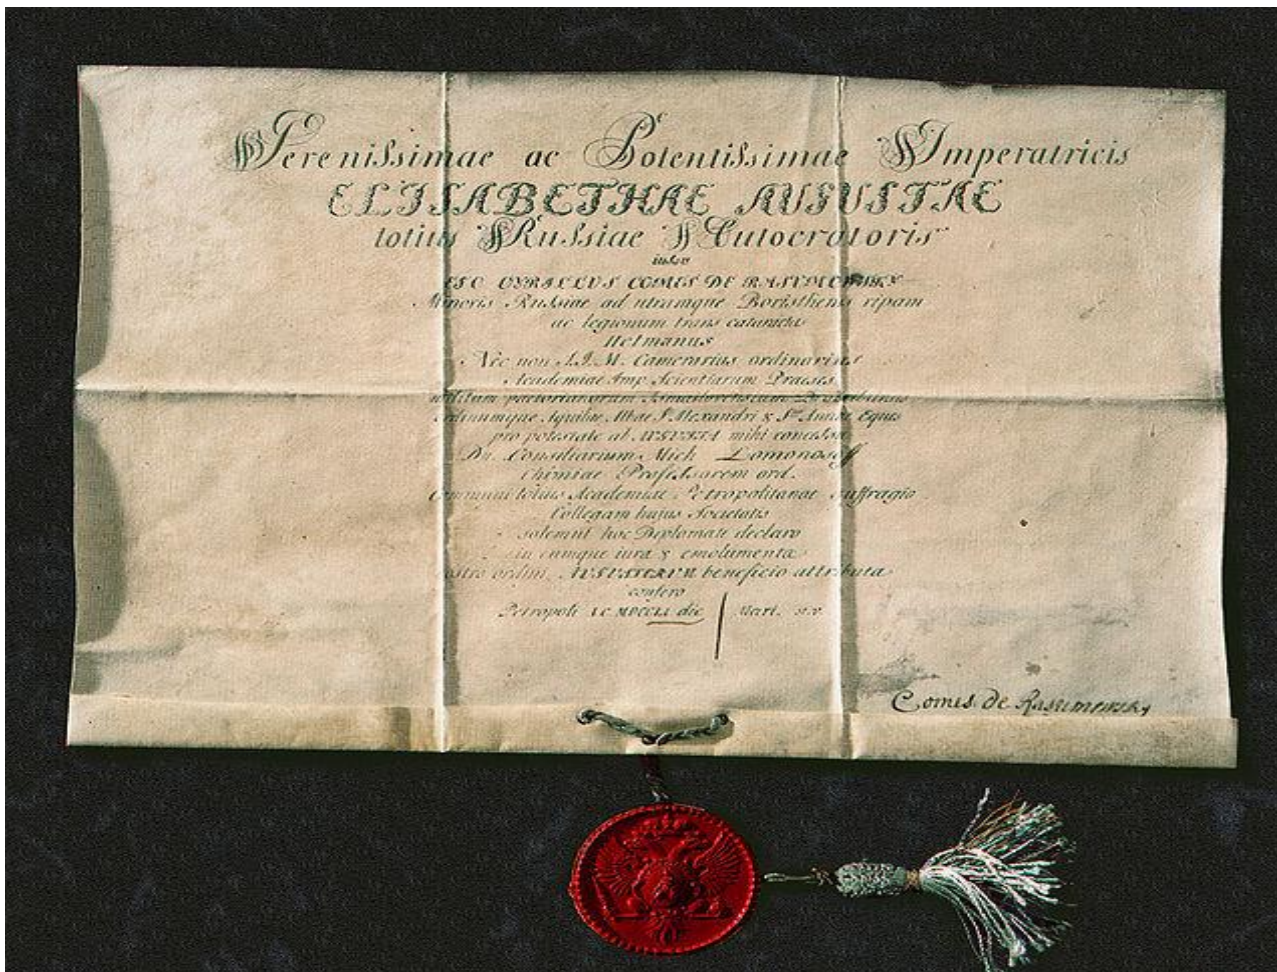 Serenissimae ac Potentissimae Imperatricis
ELISABETHAE AUGUSTAE
totius Russiae Autocratoris
iussu
EGO CYRILLUS COMES DE RASUMOWSKY
Minoris Russiae ad utramque Boristhenis ripam
ac legionum trans cataractas
Hetmanus
Nec non S.I.M. Camerarius ordinarius
Academiae Imp. Scientiarum Praeses
ordinumque Aquilae Albae S. Alexandri & S. Annae Eques
pro potestate ab AUGUSTA mihi concessa
Dn. Consiliarium Mich Lomonosoff
Chimiae Professorem ord.
communi totius Academiae Petropolitanae suffragio
Collegam hujus Societatis
solemni hoc Diplomate declaro
in eumque iura & emolumenta
nostro ordini AUGUSTARUM beneficio attributa
confero
Petropoli MDCCLI die Mart. s.v.
Comes de Rasumowsky